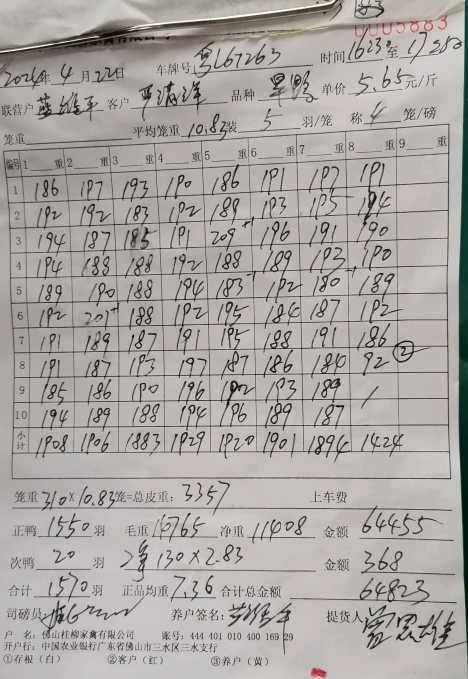 0005883
2024年4月22日 车牌号 粤L67263 时间 16230至17250
联营户 蓝雄平 客户 严清洋 品种 单价 5.65元/斤
笼重 平均笼重 10.83 装 5 羽/笼 称 4 笼/磅
编号 1 重 2 重 3 重 4 重 5 重 6 重 7 重 8 重 9 重
1 186 187 193 190 186 191 197 191
2 192 192 183 192 189 193 195 194
3 194 187 185 191 209+1 196 191 190
4 194 188 188 192 188 189 193 190
5 189 190 188 194 183-1 192 180-1 189
6 192 201+1 188 192 195 184 187 192
7 191 189 187 191 195 188 191 186
8 191 187 193 197 187 186 184 92 ②
9 185 186 190 196 192 193 189 /
10 194 189 188 194 196 189 187
小计 1908 1906 1883 1929 1920 1901 1894 1424
笼重 310×10.83 笼=总皮重: 3357 上车费
正鸭 1550 羽 毛重 14765 净重 11408 金额 64455
次鸭 20 羽 净 130×2.83 金额 368
合计 1570 羽 正品均重 7.36 合计总金额 64823
司磅员 养户签名: 提货人 曾思雄
户 名: 佛山桂柳家禽有限公司 账号: 444 401 010 400 169 29
开户行: 中国农业银行广东省佛山市三水区三水支行
①存根(白) ②客户(红) ③养户(黄)